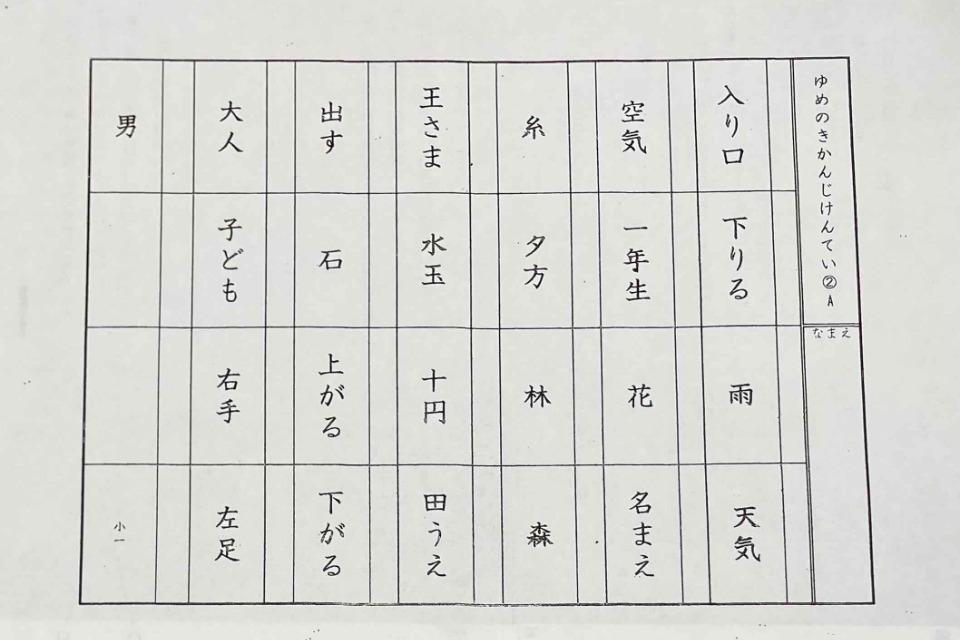 ゆめのきかんじけんてい②A
なまえ
入り口
下りる
雨
天気
空気
一年生
花
名まえ
糸
夕方
林
森
王さま
水玉
十円
田うえ
出す
石
上がる
下がる
大人
子ども
右手
左足
男
小一